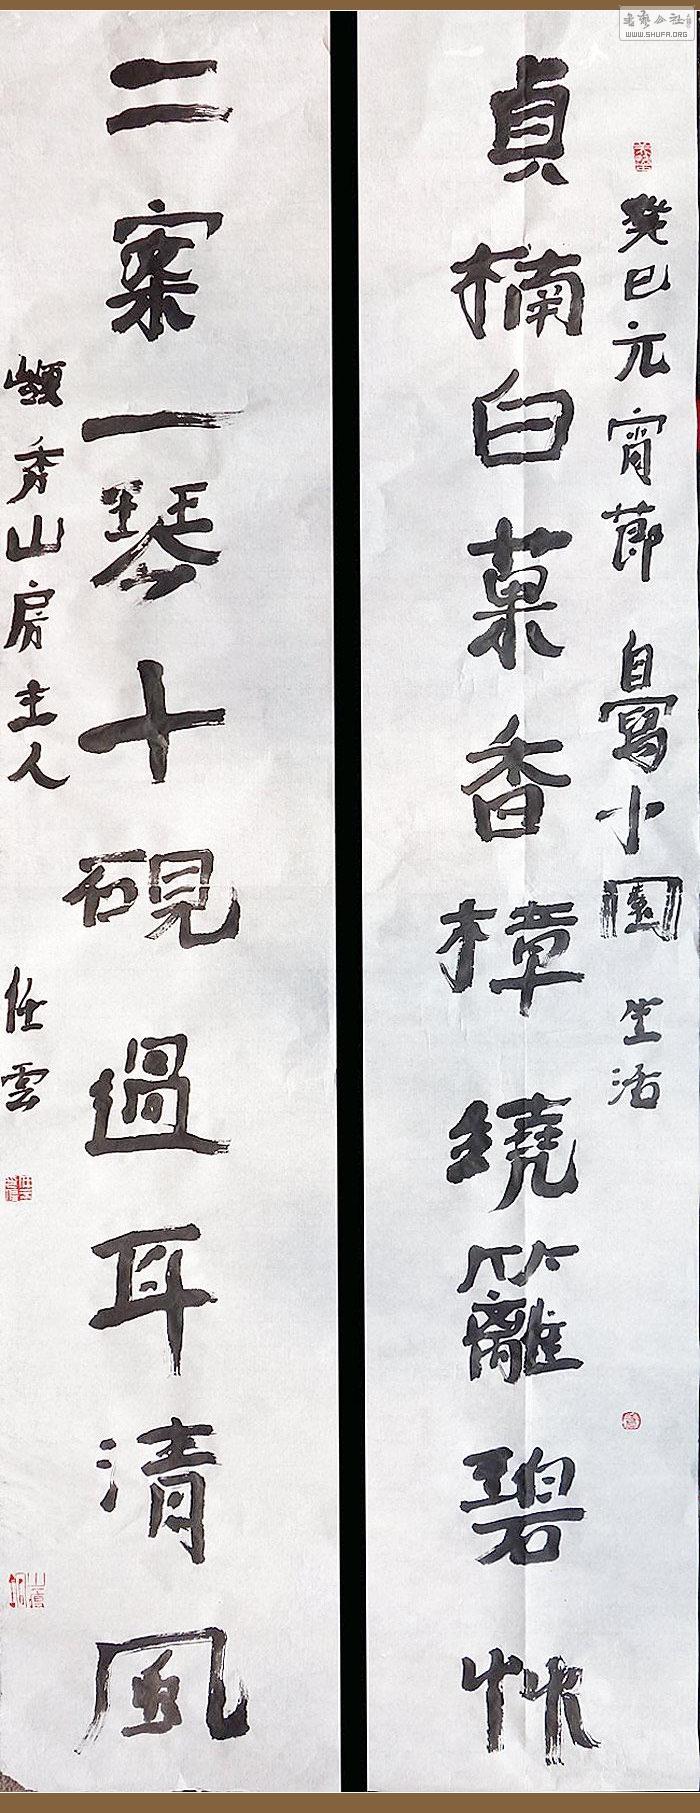 书艺公社
WWW.SHUFA.ORG
癸巳元宵節 自寫小園 生活
貞楠白菓香樟繞籬碧艸
二案一琴十硯過耳清風
巔秀山房主人 任雲